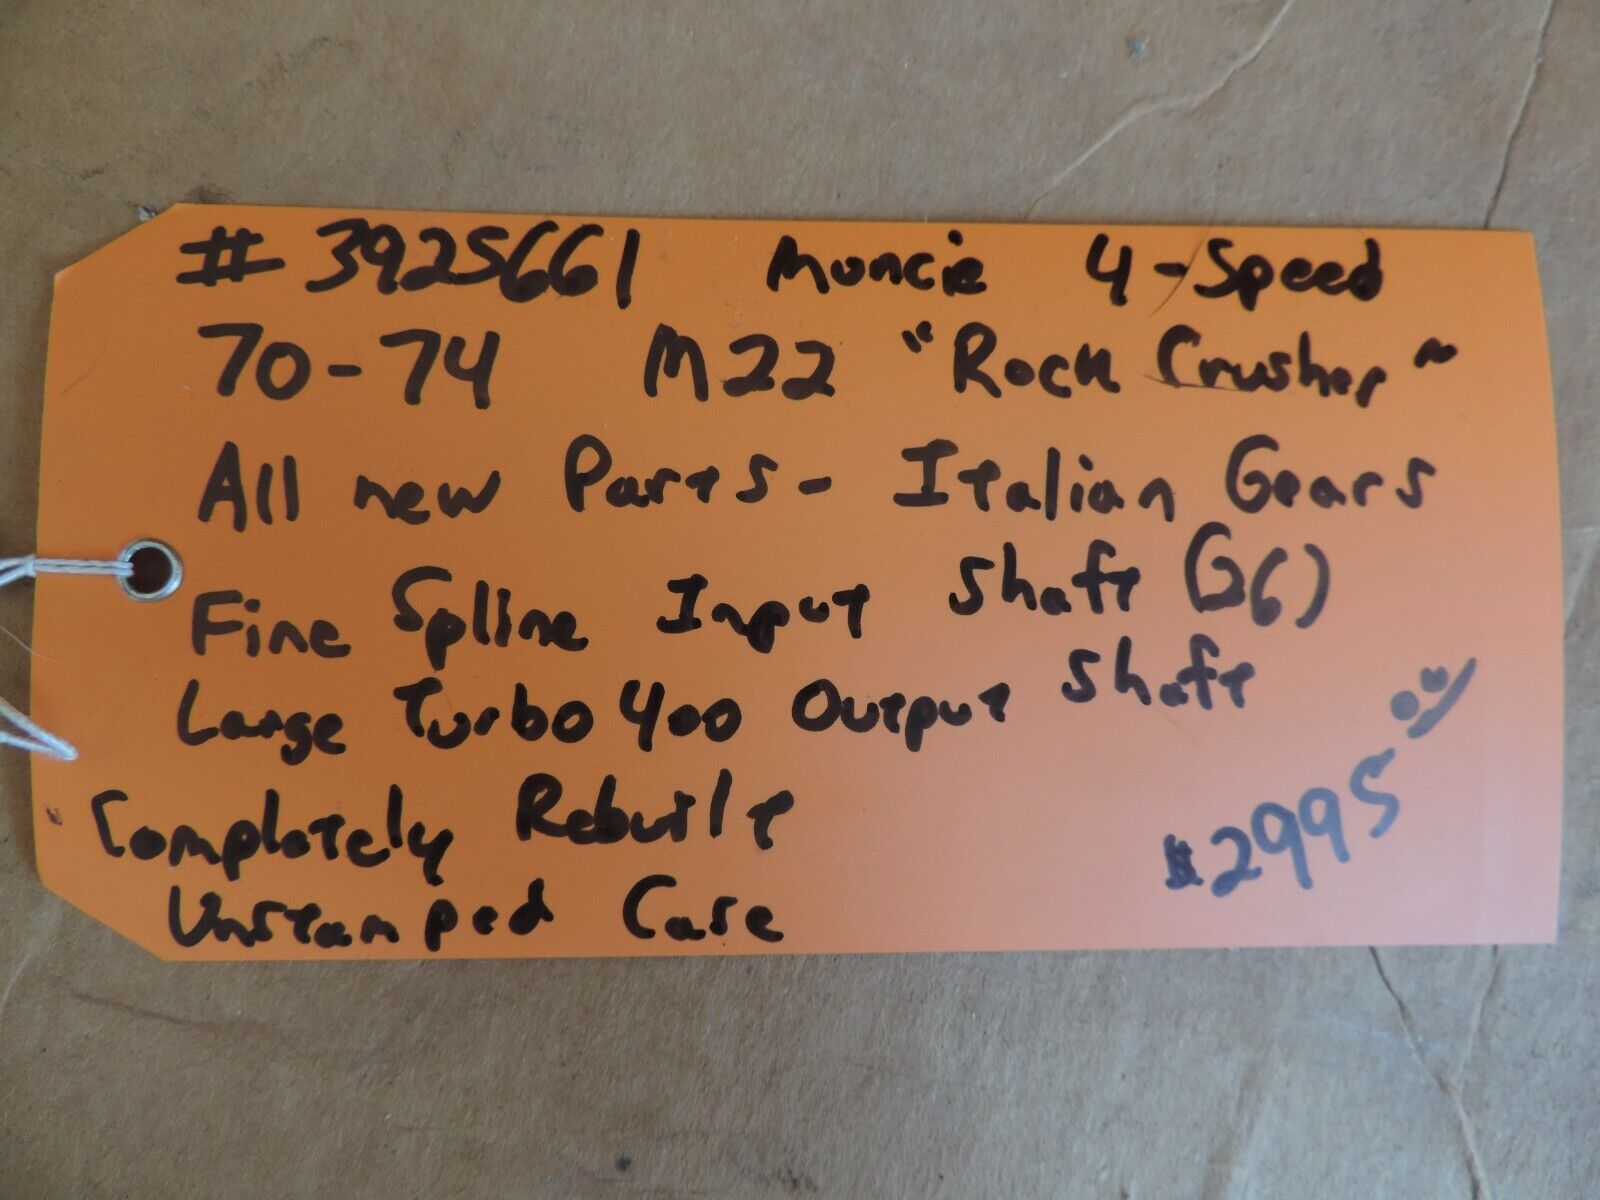 #3925661 Muncie 4-Speed
70-74 M22 "Rock Crusher"
All new Parts- Italian Gears
Fine Spline Input Shaft (26)
Large Turbo 400 Output Shaft
Completely Rebuilt
Unstamped Case
$2995.00